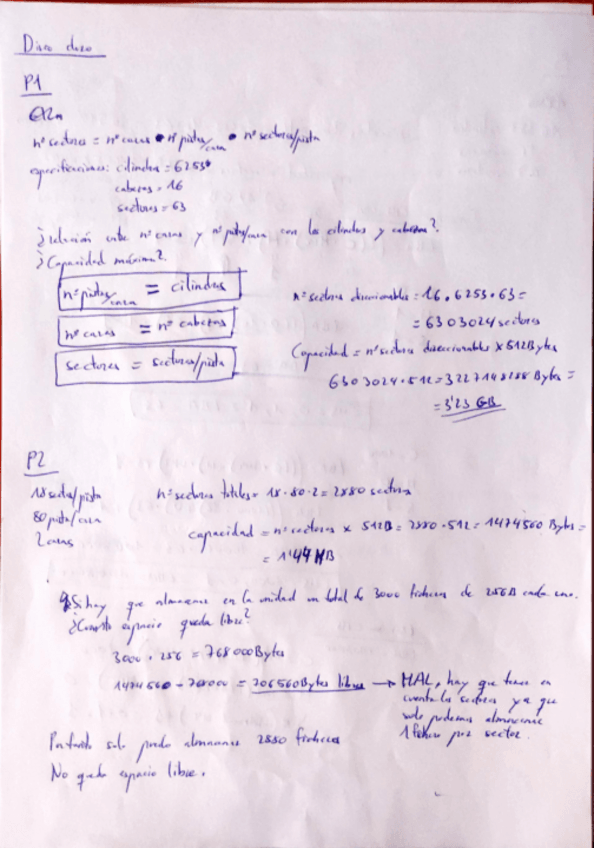 Disco duro
P1
nº sectores = nº caras • nº pistas/cara • nº sectores/pista
especificaciones: cilindros = 6253
cabezas = 16
sectores = 63
¿relación entre nº caras y nº pistas/cara con los cilindros y cabezas?
¿Capacidad máxima?
nº pistas/cara = cilindros
nº caras = nº cabezas
sectores = sectores/pista
nº sectores direccionables = 16 . 6253 . 63 =
= 6303024 sectores
Capacidad = nº sectores direccionables x 512 Bytes
6303024 . 512 = 3227148288 Bytes =
= 3'23 GB
P2
18 sectes/pista
80 pista/cara
2 caras
nº sectores totales = 18 . 80 . 2 = 2880 sectores
capacidad = nº sectores x 512B = 2880 . 512 = 1474560 Bytes =
= 1'44 MB
Si hay que almacenar en la unidad un total de 3000 ficheros de 256B cada uno.
¿Cuanto espacio queda libre?
3000 . 256 = 768000 Bytes
1474560 - = 706560 Bytes libres → MAL, hay que tener en
cuenta los sectores ya que
solo podemos almacenar
1 fichero por sector.
Por tanto solo puedo almacenar 2880 ficheros
No queda espacio libre.